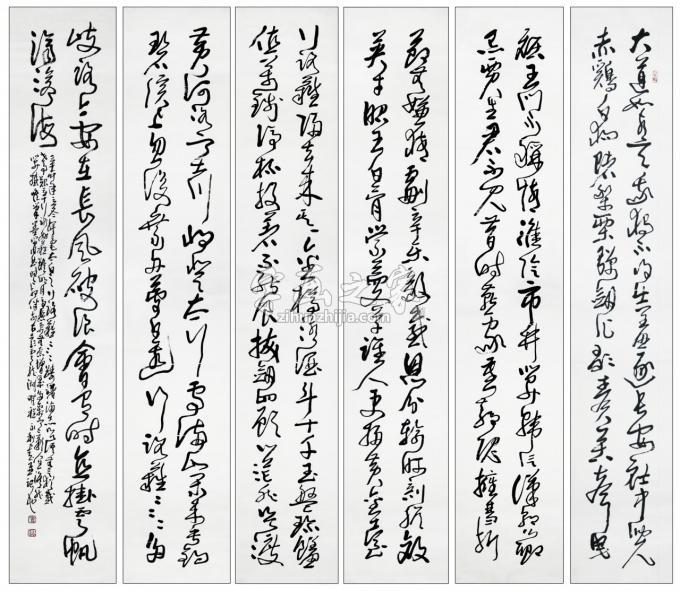 大道如青天我獨不得出羞逐長安社中兒
赤鷄白狗賭梨栗彈劍作歌奏苦聲曳
裾王門不稱情淮陰市井笑韓信漢朝公卿
忌賈生君不見昔時燕家重郭隗擁篲折
節無嫌猜劇辛樂毅感恩分輸肝剖膽效
英才昭王白骨縈蔓草誰人更掃黃金臺
行路難歸去來其一金樽清酒斗十千玉盤珍饈
值萬錢停杯投箸不能食拔劍四顧心茫然欲渡
黃河冰塞川將登太行雪滿山閑來垂釣
碧溪上忽復乘舟夢日邊行路難〻〻〻多
歧路今安在長風破浪會有時直掛雲帆
濟滄海
字画之家
zihuazhijia.com